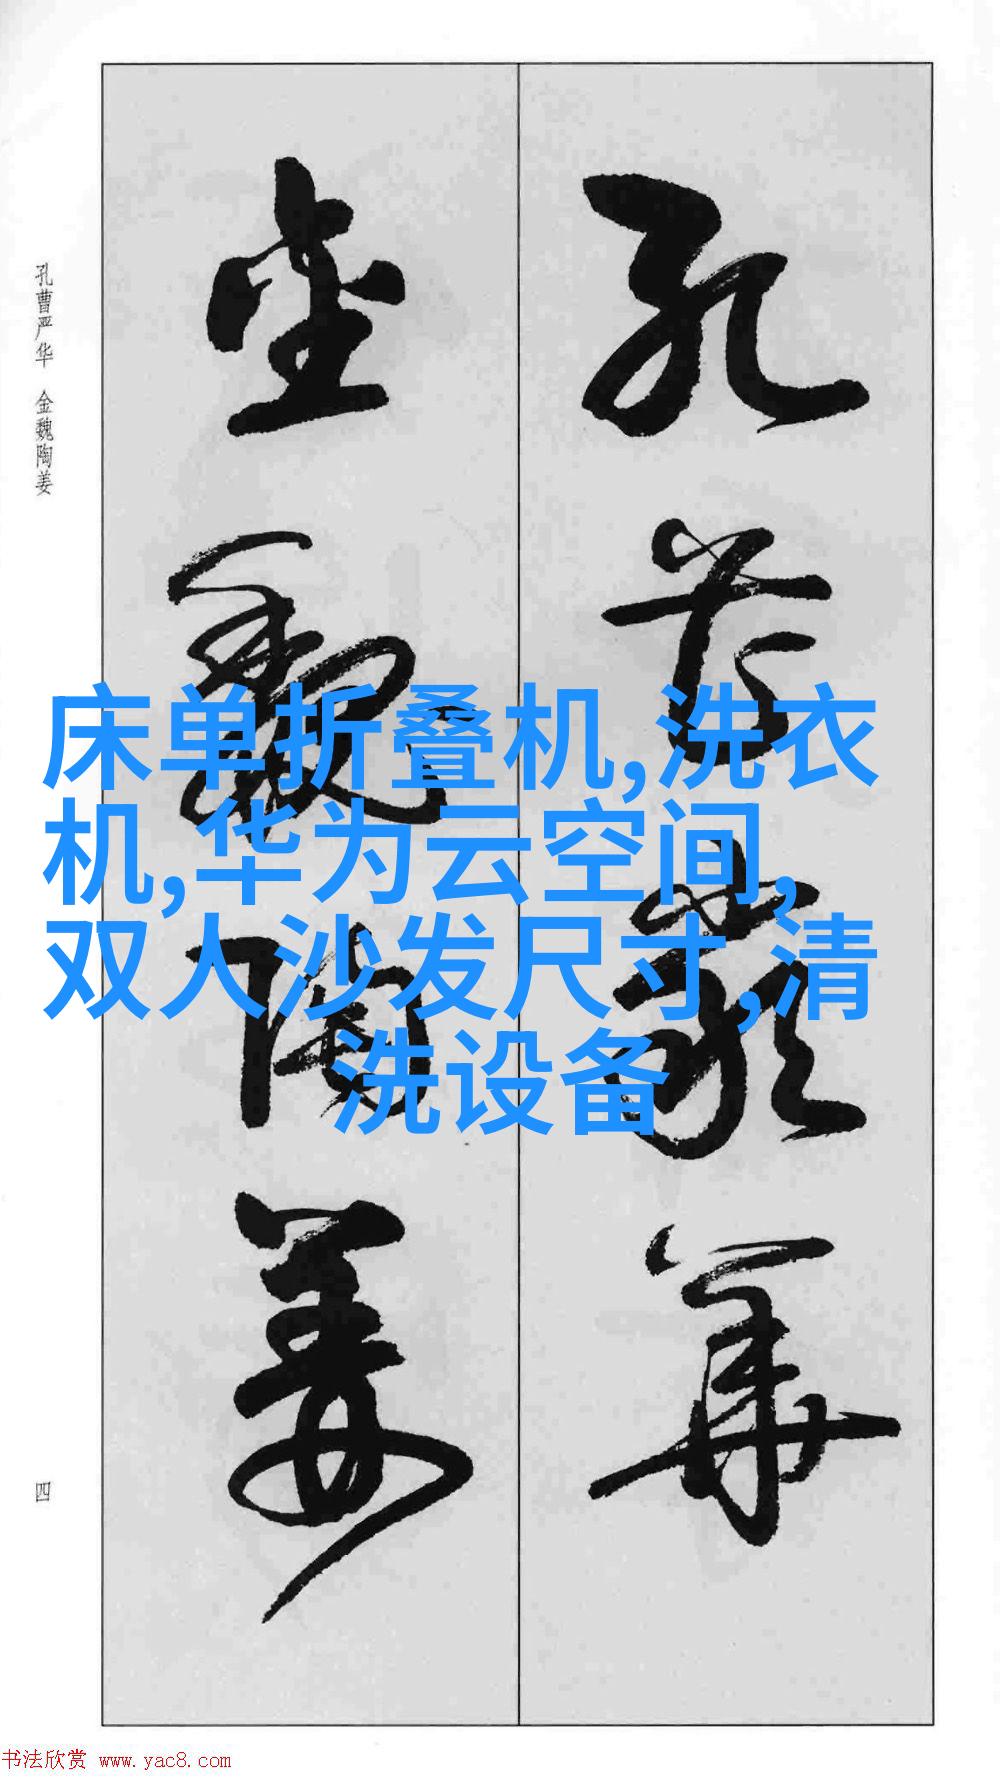 孔曹严华 金魏陶姜
孔曹嚴華
金魏陶姜
床单折叠机,洗衣
机,华为云空间,
双人沙发尺寸,清
洗设备
四
书法欣赏 www.yac8.com